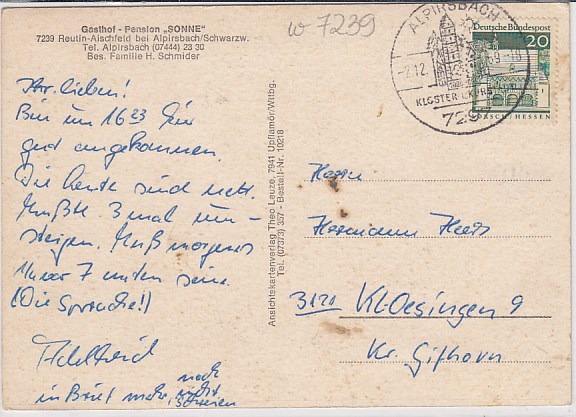 Gasthof - Pension „SONNE"
7239 Reutin-Aischfeld bei Alpirsbach/Schwarzw.
Tel. Alpirsbach (07444) 23 30
Bes. Familie H. Schmider
w 7239
ALPIRSBACH
-2.12. 69-18
KLOSTER
729
Deutsche Bundespost
20
LORSCH/HESSEN
Ihr lieben!
Bin um 16 23 hier
gut angekommen.
Die Leute sind nett.
Mußte 3 mal um-
steigen. Muß morgens
7 unten sein.
(Die Sprache!)
in Brief mehr, noch
nicht
Ansichtskartenverlag Theo Leuze, 7941 Upflamör/Wttbg.
Tel. (07373) 357 - Bestell-Nr. 10218
Herrn
Hermann
3121 Kl. Oesingen 9
Kr. Gifhorn